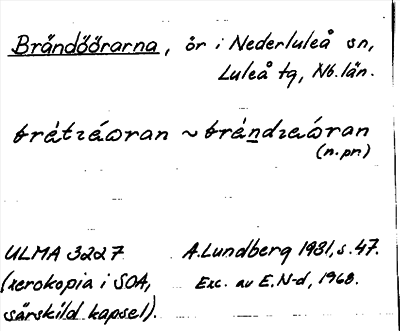 Brändöörarna, ör i Nederluleå sn,
Luleå tg, Nb. län.
(n. pr.)
ULMA 3227. A. Lundberg 1931, s. 47.
(xerokopia i SOA, Exc. av E. N-d, 1968.
särskild kapsel).